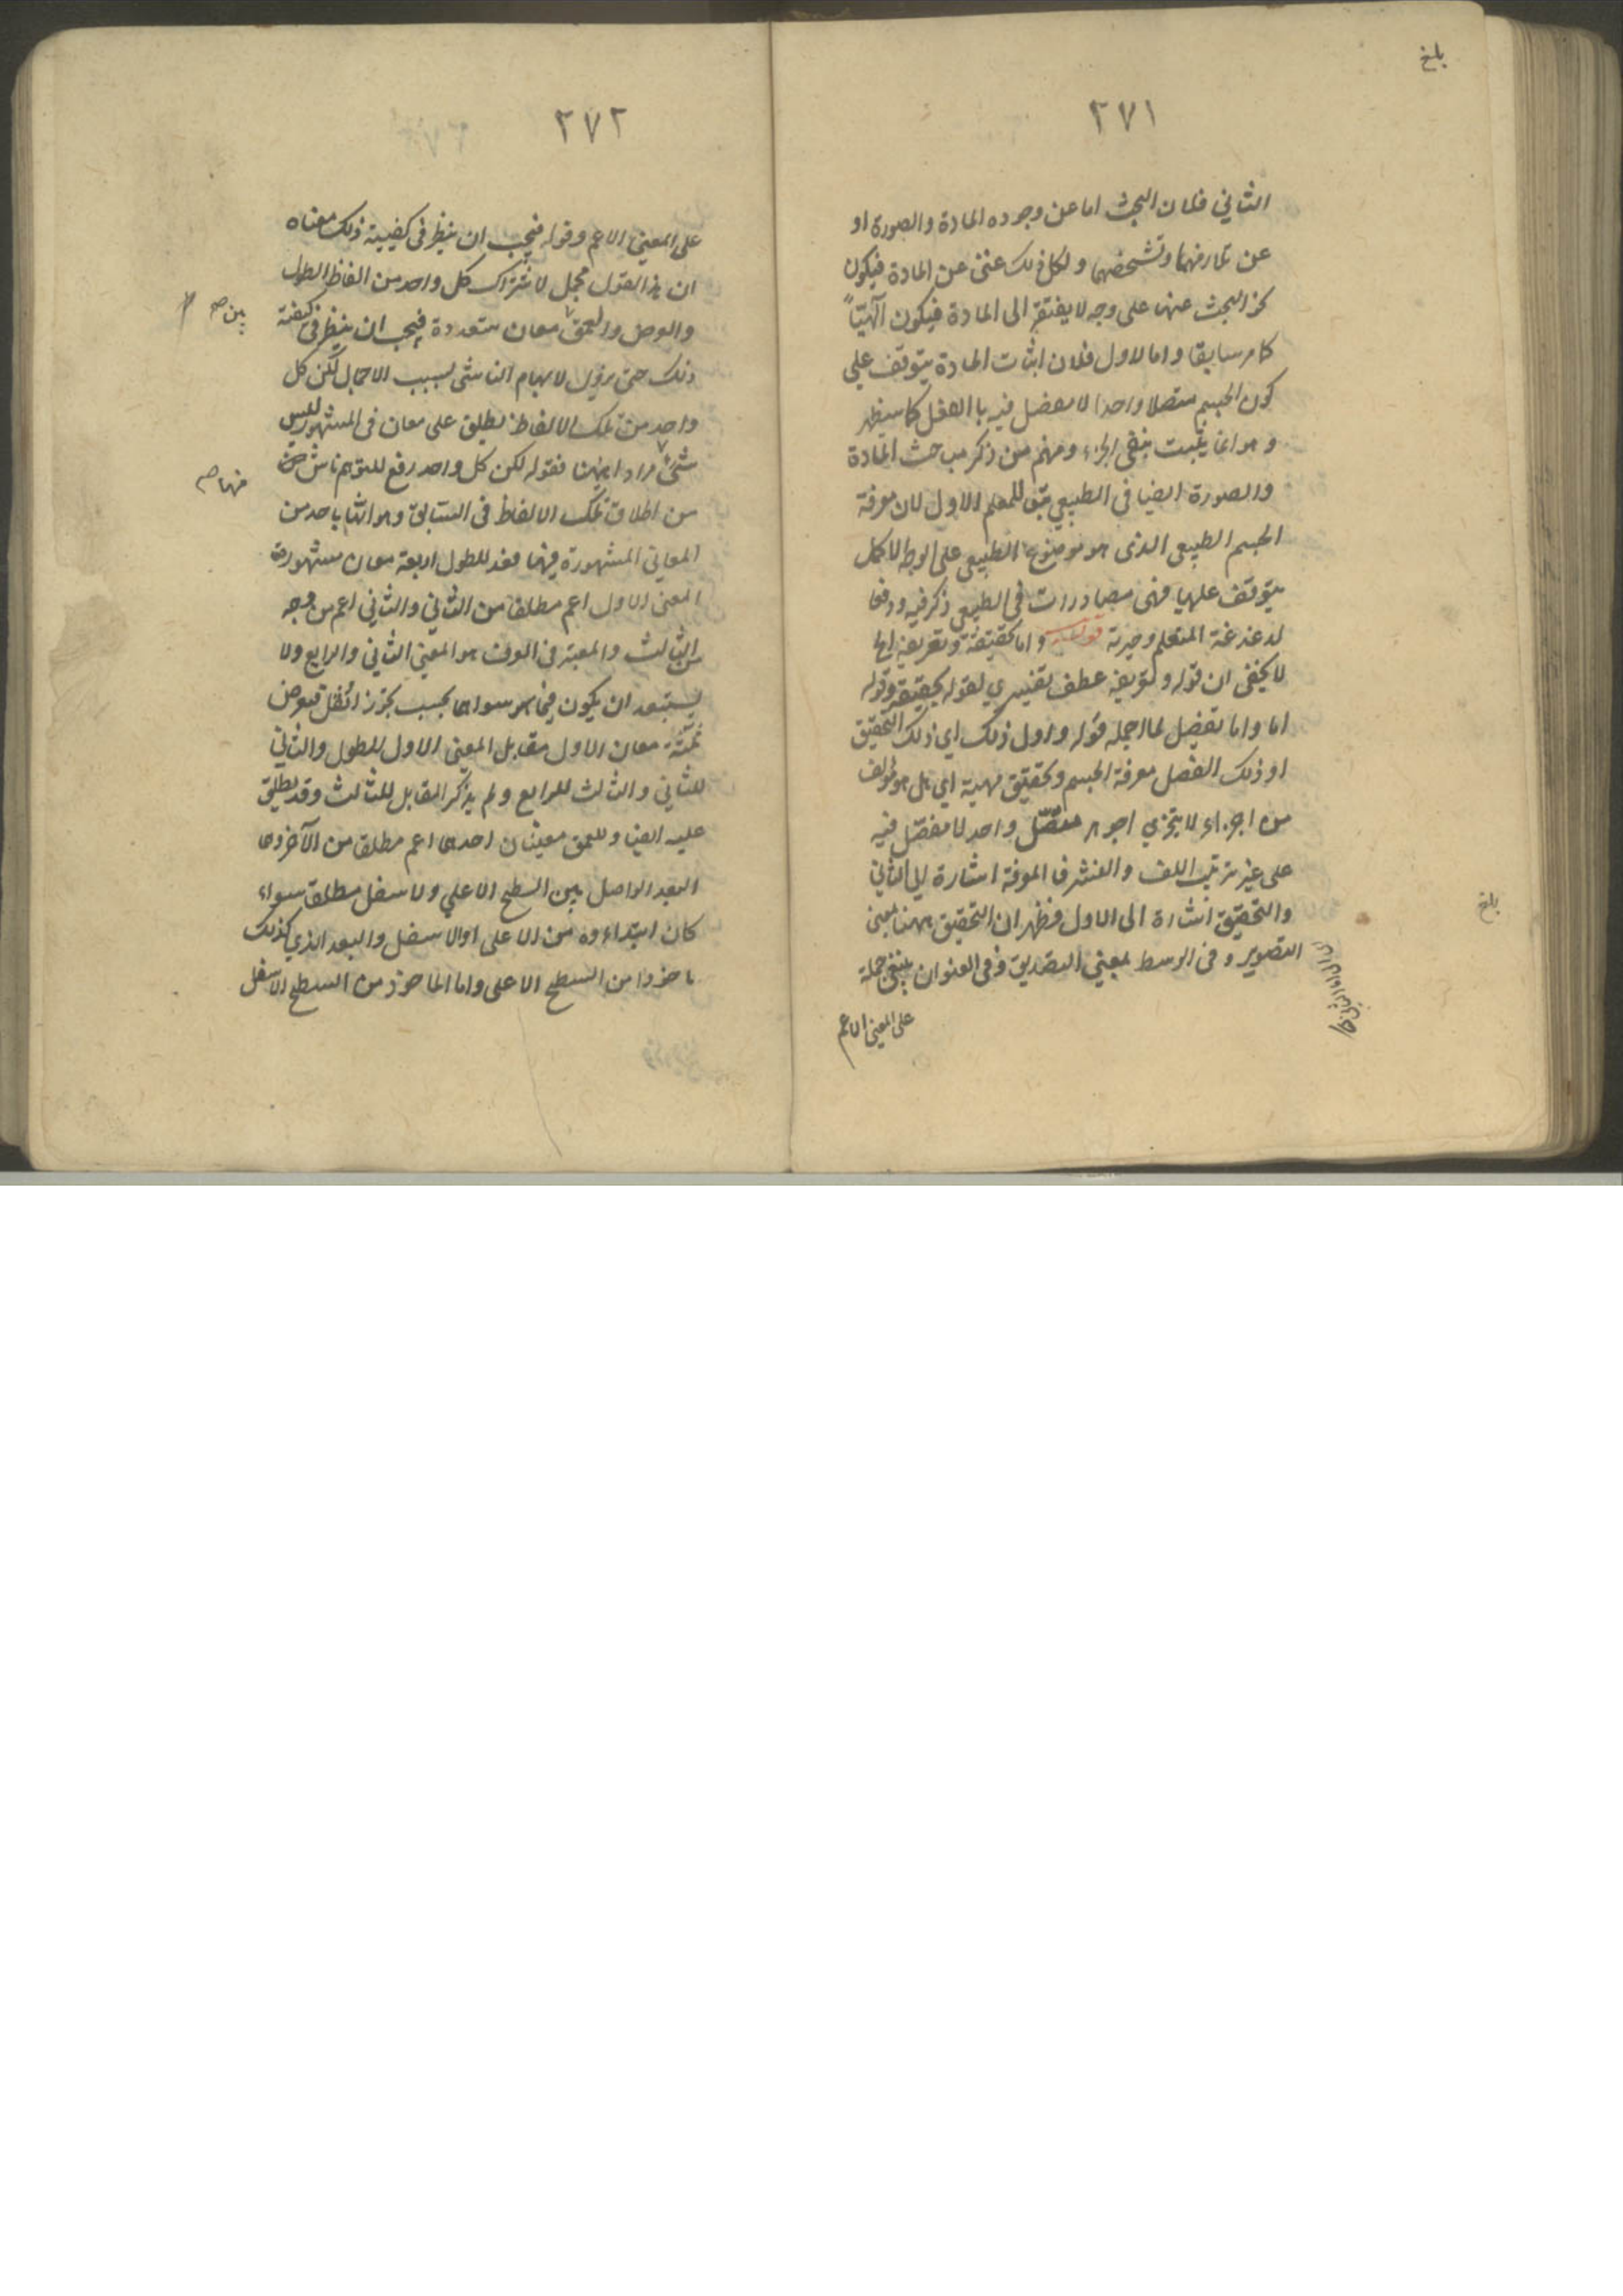 بلغ
٢٧١
الثاني فلان البحث اما عن وجود المادة والصورة او
عن تلازمهما وتشخصهما ولكل ذلك غنى عن المادة فيكون
البحث عنها على وجه لا يفتقر الى المادة فيكون آلهيّاً
كما مر سابقا واما الاول فلان اثبات المادة يتوقف على
كون الجسم متصلا واحدا لا مفصل فيه بالفعل كما سيظهر
وهو انما يثبت بنفى الجزء ومنهم من ذكر مباحث المادة
والصورة ايضا فى الطبيعي للمعلم الاول لان معرفة
الجسم الطبيعي الذى هو موضوع الطبيعي على الوجه الاكمل
يتوقف عليها فهى مصادرات فى الطبيعي ذكر فيه ودفعا
لدغدغة المتعلم وحيرته قوله واما تحقيقه وتعريفه الخ
لا يخفى ان قوله وتعريفه عطف تفسيري لقوله تحقيقه وقوله
اما واما تفصيل لما اجمله قوله واول ذلك اي ذلك التحقيق
او ذلك الفصل معرفة الجسم وتحقيق مهية اي هل هو مؤلف
من اجزاء لا يتجزي او جوهر متصّل واحد لا مفصّل فيه
على غير ترتيب اللف والنشر فالمعرفة اشارة الى الثاني
والتحقيق اشارة الى الاول فظهر ان التحقيق ههنا بمعنى
بلغ
التصوير وفى الوسط بمعني التصديق وفى العنوان ينبغي حمله
على المعنى الاعم
٢٧٢
على المعنى الاعم وقوله فيجب ان ينظر فى كيفية ذلك معناه
ان هذا القول مجمل لاشتراك كل واحد من الفاظ الطول
والعرض والعمق معان متعددة فيجب ان ينظر فى كيفية
بين صح
ذلك حتى يزول الابهام الناشى بسبب الاجمال لكن كل
واحد من تلك الالفاظ يطلق على معان فى المشهور ليس
شئ مرادا ههنا فقوله لكن كل واحد رفع للتوهم ناش
منها صح
من اطلاق تلك الالفاظ فى السابق وهو انها باحد من
المعاني المشهورة فيها فعد للطول اربعة معان مشهورة
المعنى الاول اعم مطلقا من الثاني والثاني اعم من وجه
من الثالث والمعتبر فى العرف هو المعنى الثاني والرابع ولا
يستبعد ان يكون فيما هو سواهما بحسب للعرض
ثلثة معان الاول مقابل المعنى الاول للطول والثاني
للثاني والثالث للرابع ولم يذكر المقابل للثالث وقد يطلق
عليه ايضا وللعمق معنيان احدهما اعم مطلقا من الآخر وهما
البعد الواصل بين السطح الاعلى والاسفل مطلقا سواء
كان ابتداءوه من الاعلى او الاسفل والبعد الذي كذلك
ماخوذا من السطح الاعلى واما الماخوذ من السطح الاسفل